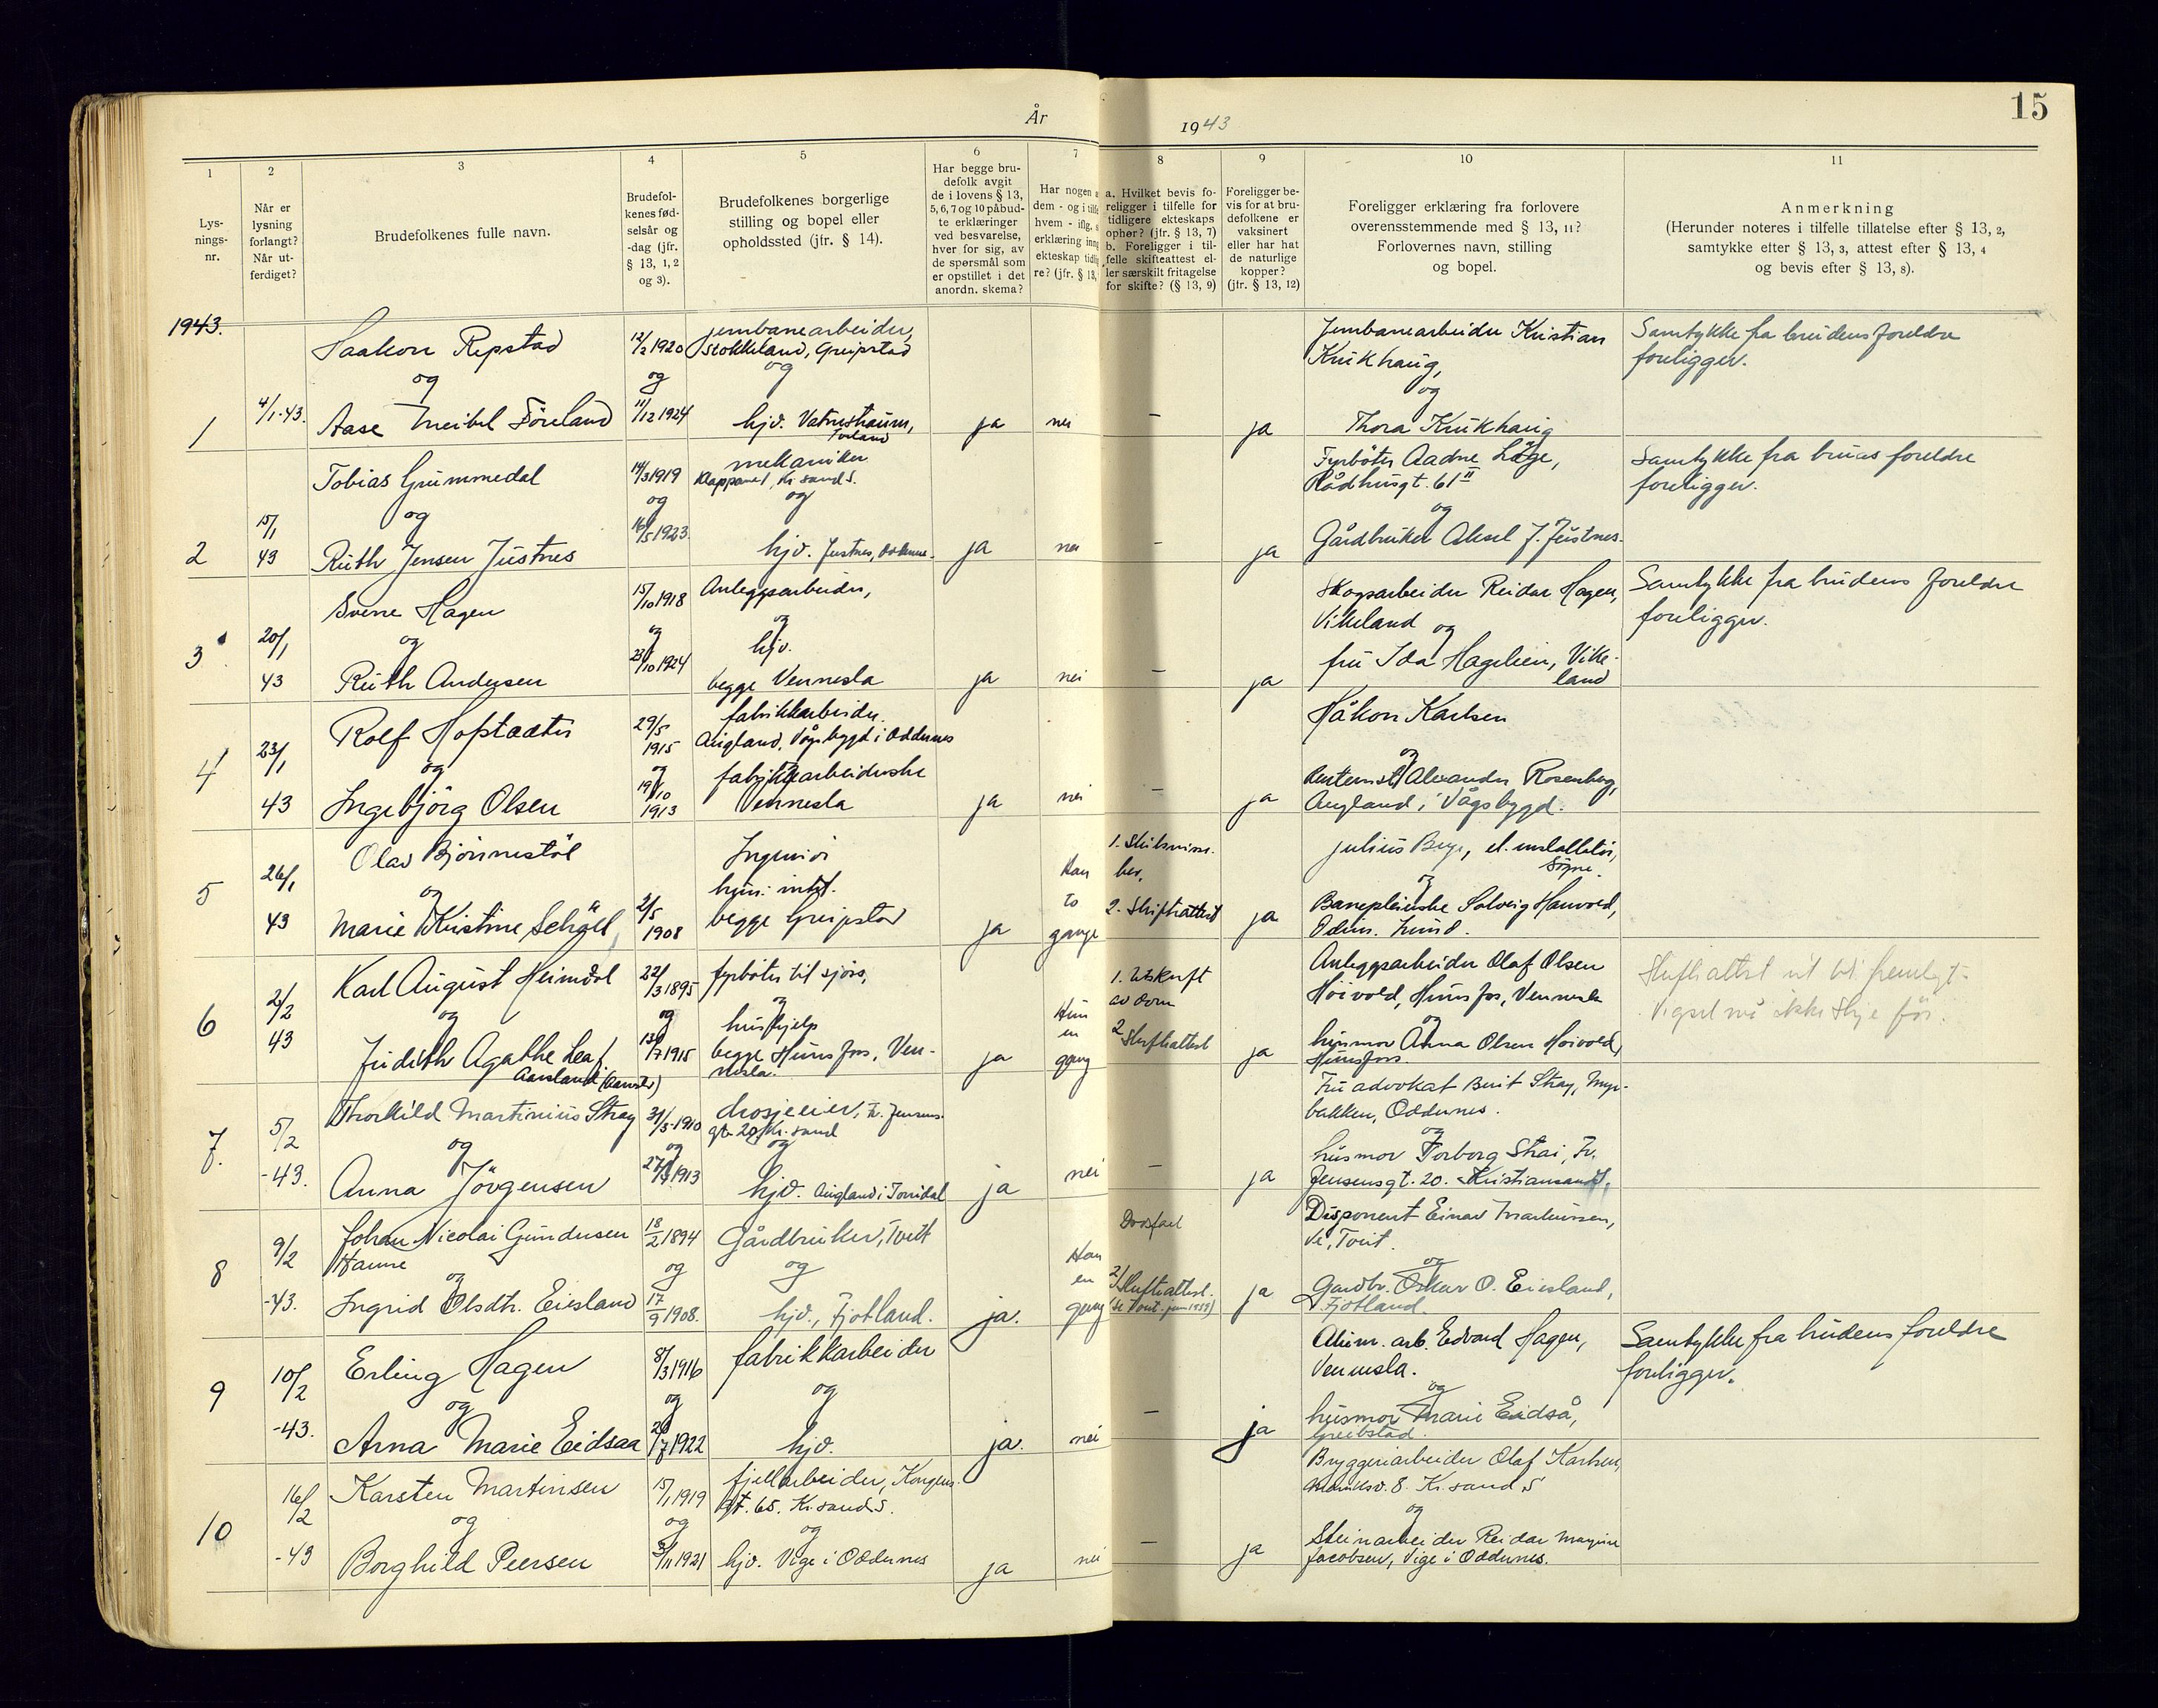 År
1943
15
1
2
3
4
5
6
7
8
9
10
11
Lys-
nings-
nr.
Når er
lysning
forlangt?
Når ut-
ferdiget?
Brudefolkenes fulle navn.
Brudefol-
kenes fød-
selsår og
-dag (jfr.
§ 13, 1, 2
og 3).
Brudefolkenes borgerlige
stilling og bopel eller
opholdssted (jfr. § 14).
Har begge bru-
defolk avgit
de i lovens § 13,
5, 6, 7 og 10 påbud-
te erklæringer
ved besvarelse,
hver for sig, av
de spørsmål som
er opstillet i det
anordn. skema?
Har nogen a
dem - og i tilfe
hvem - iflg. a
erklæring inng
ekteskap tidli
re? (jfr. § 13,
a. Hvilket bevis fo-
religger i tilfelle for
tidligere ekteskaps
ophør? (jfr. § 13, 7)
b. Foreligger i til-
felle skifteattest el-
ler særskilt fritagelse
for skifte? (§ 13, 9)
Foreligger be-
vis for at bru-
defolkene er
vaksinert
eller har hat
de naturlige
kopper?
(jfr. § 13, 12)
Foreligger erklæring fra forlovere
overensstemmende med § 13, 11?
Forlovernes navn, stilling
og bopel.
Anmerkning
(Herunder noteres i tilfelle tillatelse efter § 13, 2,
samtykke efter § 13, 3, attest efter § 13, 4
og bevis efter § 13, 8).
1943.
1
4/1-43.
Haakon Repstad
og
Aase Meibel Föreland
12/2 1920
og
11/12 1924
jernbanearbeider,
Stokkeland, Greipstad
og
hjv. Vatnestraum,
ja
nei
-
ja
Jernbanearbeider Kristian
Krukhaug,
og
Thora Krukhaug
Samtykke fra brudens foreldre
foreligger.
2
15/1
43
Tobias Grummedal
og
Ruth Jensen Justnes
14/3 1919
og
16/5 1923.
mekaniker
Kr.sand S.
og
hjv. Justnes, Oddernes.
ja
nei
-
ja
Fyrböter Aadne Löge,
Rådhusgt. 61 II
og
Gårdbruker Aksel J. Justnes.
Samtykke fra bruas foreldre
foreligger.
3
20/1
43
Sverre Hagen
og
Ruth Andersen
15/10 1918
og
23/10 1924
Anleggsarbeider,
og
hjv.
begge Vennesla
ja
nei
-
ja
Skogsarbeider Reidar Hagen,
Vikeland og
fru Ida Hagelien, Vike-
land
Samtykke fra brudens foreldre
foreligger.
4
23/1
43
Rolf Hofstadter
og
Ingebjörg Olsen
29/5
1915
og
19/10
1913
fabrikkarbeider.
Augland, Vågsbygd i Oddernes
og
fabrikkarbeiderske
Vennesla
ja
nei
-
ja
Håkon Karlsen
og
Alexander Rosenberg,
Augland i Vågsbygd.
5
26/1
43
Olav Bjönnestöl
og
Marie Kristine Schöll
2/5
1908
Ingeniör
begge Greipstad
ja
Han
to
gange
1. Skilsmisse-
bev.
2. Skifteattest
ja
Julius Berge, el. installatör,
Sögne.
og
Barnepleierske Solveig Hanvold,
6
2/2
43
Karl August Heimdal
og
Judith Agathe Leaf
Aansland
22/3 1895
og
13/7 1915
fyrböter til sjös,
og
hushjelp
begge Hunsfos, Ven-
nesla.
ja
Hun
en
gang
1. Utskrift
av dom
2 Skifteattest
ja
Anleggsarbeider Olaf Olsen
Höivold, Hunsfos, Vennesla
og
husmor Anna Olsen Höivold,
Hunsfoss.
Skifteattest vil bli fremlagt.
Vigsel må ikke skje för.
7.
5/2
-43.
Thorkild Martinius Stray
og
Anna Jörgensen
31/5-1910
og
1913
drosjeeier, Fr. Jensens-
gt. 20, Kr.sand
og
hjv. Augland i Torridal
ja
nei
-
ja
Fru advokat Berit Stray, Myr-
bakken, Oddernes.
og
husmor Torborg Strai, Fr.
Jensensgt. 20. Kristiansand S.
8
9/2
-43.
Johan Nicolai Gundersen
Hanne
og
Ingrid Olsdtr. Eiesland
18/2 1894
og
17/9 1908.
Gårdbruker, Tveit
og
hjv., Fjotland.
ja.
Han
en
gang
Dödsfall
2/ Skifteattest.
ja
Disponent Einar Markussen,
Ve, Tveit.
og
Gardbr. Oskar O. Eiesland,
Fjotland.
9
10/2
-43.
Erling Hagen
og
Anna Marie Eidsaa
8/3 1916
og
20/7 1922
fabrikkarbeider
og
hjv.
ja.
nei
-
ja
Alum. arb. Edvard Hagen,
Vennesla.
og
husmor Marie Eidså,
Greibstad.
Samtykke fra brudens foreldre
foreligger.
10
16/2
-43
Karsten Martinsen
og
Borghild Peersen
15/1 1919
og
5/11 1921
fjellarbeider, Kongens
gt. 65. Kr.sand S.
og
hjv. Vige i Oddernes
ja
nei
-
ja
Bryggeriarbeider Olaf Karlsen,
8. Kr.sand S
og
Steinarbeider Reidar Magnus
Jacobsen, Vige i Oddernes.